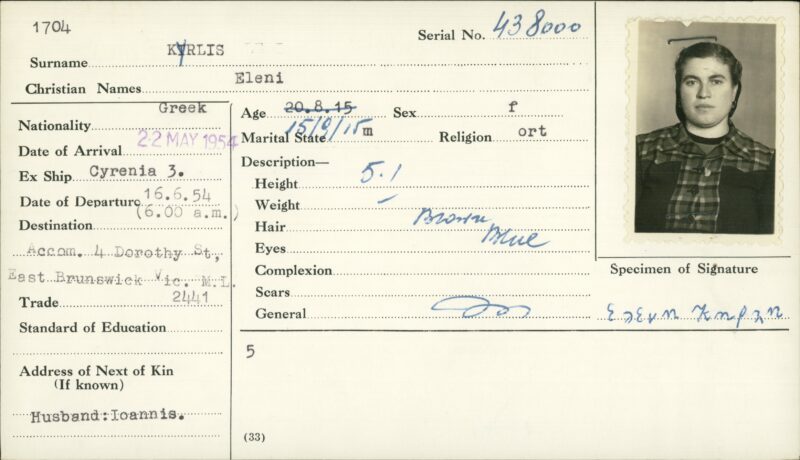 1704
Serial No. 438000
Surname KYRLIS
Christian Names Eleni
Nationality Greek
Date of Arrival 22 MAY 1954
Ex Ship Cyrenia 3.
Date of Departure 16.6.54
(6.00 a.m.)
Destination
Accom. 4 Dorothy St,
East Brunswick Vic. M.L.
2441
Trade
Standard of Education
Address of Next of Kin
(If known)
Husband:Ioannis.
Age 20.8.15 Sex f
15/9/15
Marital State m Religion ort
Description—
Height 5.1
Weight
Hair Brown
Eyes Blue
Complexion
Scars
General
5
(33)
Specimen of Signature